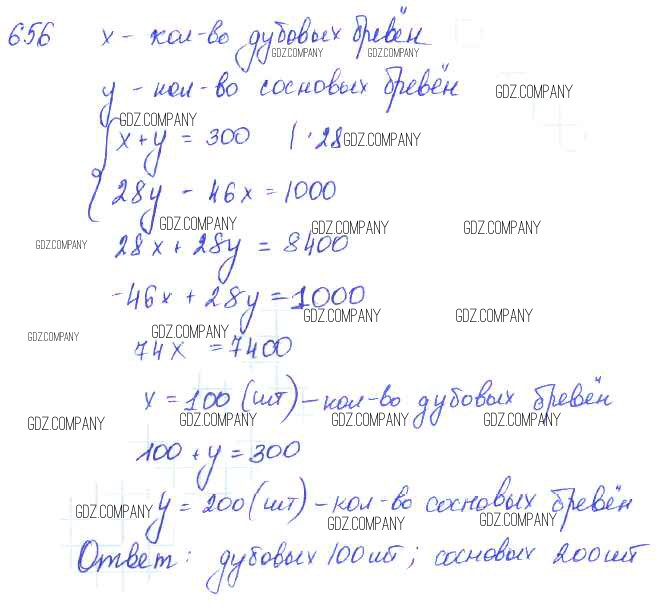 656 x - кол-во дубовых бревён
GDZ.COMPANY GDZ.COMPANY
y - кол-во сосновых бревён GDZ.COMPANY
GDZ.COMPANY
x+y = 300 | · 28 GDZ.COMPANY
28y - 46x = 1000
GDZ.COMPANY GDZ.COMPANY GDZ.COMPANY
GDZ.COMPANY 28x + 28y = 8400
-46x + 28y = 1000
GDZ.COMPANY GDZ.COMPANY
GDZ.COMPANY GDZ.COMPANY
74x = 7400
x = 100 (шт) - кол-во дубовых бревён
GDZ.COMPANY GDZ.COMPANY GDZ.COMPANY GDZ.COMPANY
100 + y = 300
y = 200 (шт) - кол-во сосновых бревён
GDZ.COMPANY GDZ.COMPANY GDZ.COMPANY
Ответ: дубовых 100шт; сосновых 200шт